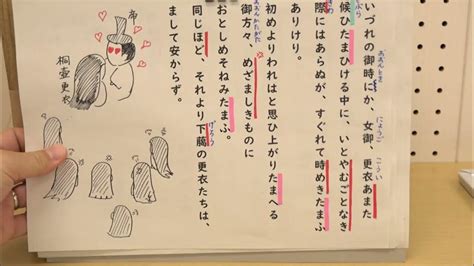 いづれの御時にか、女御、更衣あまた
候ひたまひける中に、いとやむごとなき
際にはあらぬが、すぐれて時めきたまふ
ありけり。
初めよりわれはと思ひ上がりたまへる
御方々、めざましきものに
おとしめそねみたまふ。
同じほど、それより下﨟の更衣たちは、
まして安からず。
おおんとき
にょうご
こうい
おおんかたがた
げろう
帝
桐壺更衣